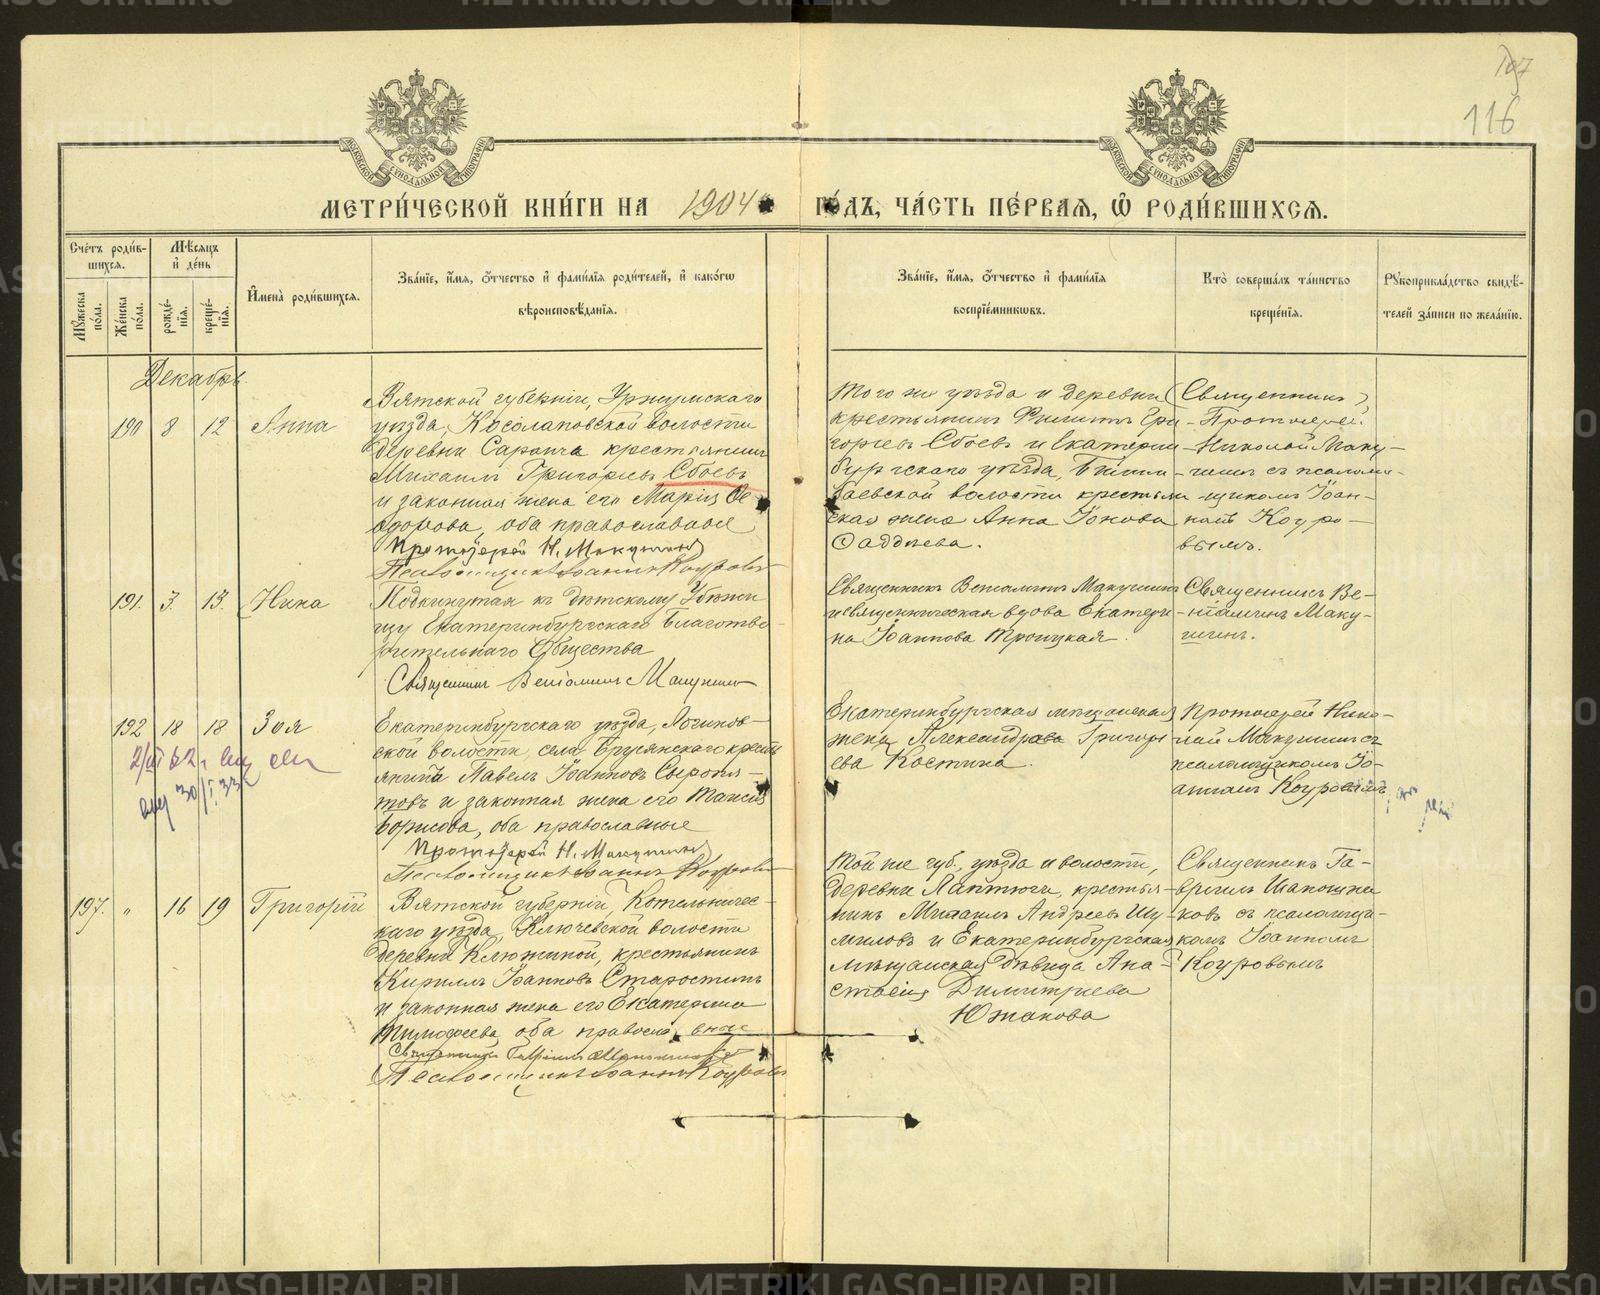 107
116
МЕТРИ́ЧЕСКОЙ КНИ́ГИ НА 1904 ГО́ДЪ, ЧА́СТЬ ПЕ́РВАЯ, Ѡ҆ РОДИ́ВШИХСЯ.
Сче́тъ роди́в-
шихся.
Мѣ́сяцъ
и҆ де́нь
Мꙋ́жеска по́ла.
Же́нска по́ла.
рожде́-
нїя.
креще́-
нїя.
И҆мена̀ роди́вшихся.
Зва́нїе, и҆́мя, ѻ҆́тчество и҆ фами́лїя роди́телей, и҆ како́гѡ
вѣроисповѣ́данїя.
Зва́нїе, и҆́мя, ѻ҆́тчество и҆ фами́лїя
воспрїе́мникѡвъ.
Кто̀ соверша́лъ та́инство
креще́нїя.
Рꙋкоприкла́дство свидѣ́-
телей за́писи по жела́нїю.
Декабрь
190 8 12 Анна
Вятской губерніи, Уржумскаго
уѣзда, Косолаповской волости
деревни Саранча крестьянинъ
Михаилъ Григорьевъ Сбоевъ
и законная жена его Марія Ѳе-
одорова, оба православные
Протоіерей Н. Макушинъ
Псаломщикъ Іоаннъ Коуровъ
Того же уѣзда и деревни
крестьянинъ Филиппъ Гри-
горьевъ Сбоевъ и Екатерин-
бургскаго уѣзда,
баевской волости крестьян-
ская жена Анна Іонова
Ѳаддѣева.
(Священникъ)
Протоіерей
Николай Маку-
шинъ съ псалом-
щикомъ Іоан-
номъ Коуро-
вымъ.
191. 3. 13. Нина
Подкинутая къ дѣтскому Убѣжи
щу Екатеринбургскаго Благотво-
рительнаго Общества
Священникъ Веніаминъ Макушинъ
Священникъ Веніаминъ Макушинъ
и священническая вдова Екатери-
на Іоаннова Троицкая.
Священникъ Ве-
ніаминъ Маку-
шинъ.
192 18 18 Зоя
30/I 33
Екатеринбургскаго уѣзда, Логинов-
ской волости, села Бруснянскаго кресть
янинъ Павелъ Іоанновъ Сыропя-
товъ и законная жена его Таисія
Борисова, оба православные
Протоіерей Н. Макушинъ
Псаломщикъ Іоаннъ Коуровъ
Екатеринбургская мѣщанская
жена Александра Григорь
ева Костина.
Протоіерей Нико-
лай Макушинъ съ
псаломщикомъ Іо-
анномъ Коуровымъ
197. " 16 19 Григорій
Вятской губерніи, Котельничес-
каго уѣзда, Ключевской волости
деревни Клюжиной, крестьянинъ
Кириллъ Іоанновъ Старостинъ
и законная жена его Екатерина
Тимофеева, оба православные
Священникъ Гавріилъ Шапошниковъ
Псаломщикъ Іоаннъ Коуровъ
Той же губ., уѣзда и волости,
деревни Лаптюги, крестья-
нинъ Михаилъ Андреевъ Шу-
миловъ и Екатеринбургская
мѣщанская дѣвица Ана-
стасія Димитріева
Южакова
Священникъ Га-
вріилъ Шапошни
ковъ съ псаломщи-
комъ Іоанномъ
Коуровымъ